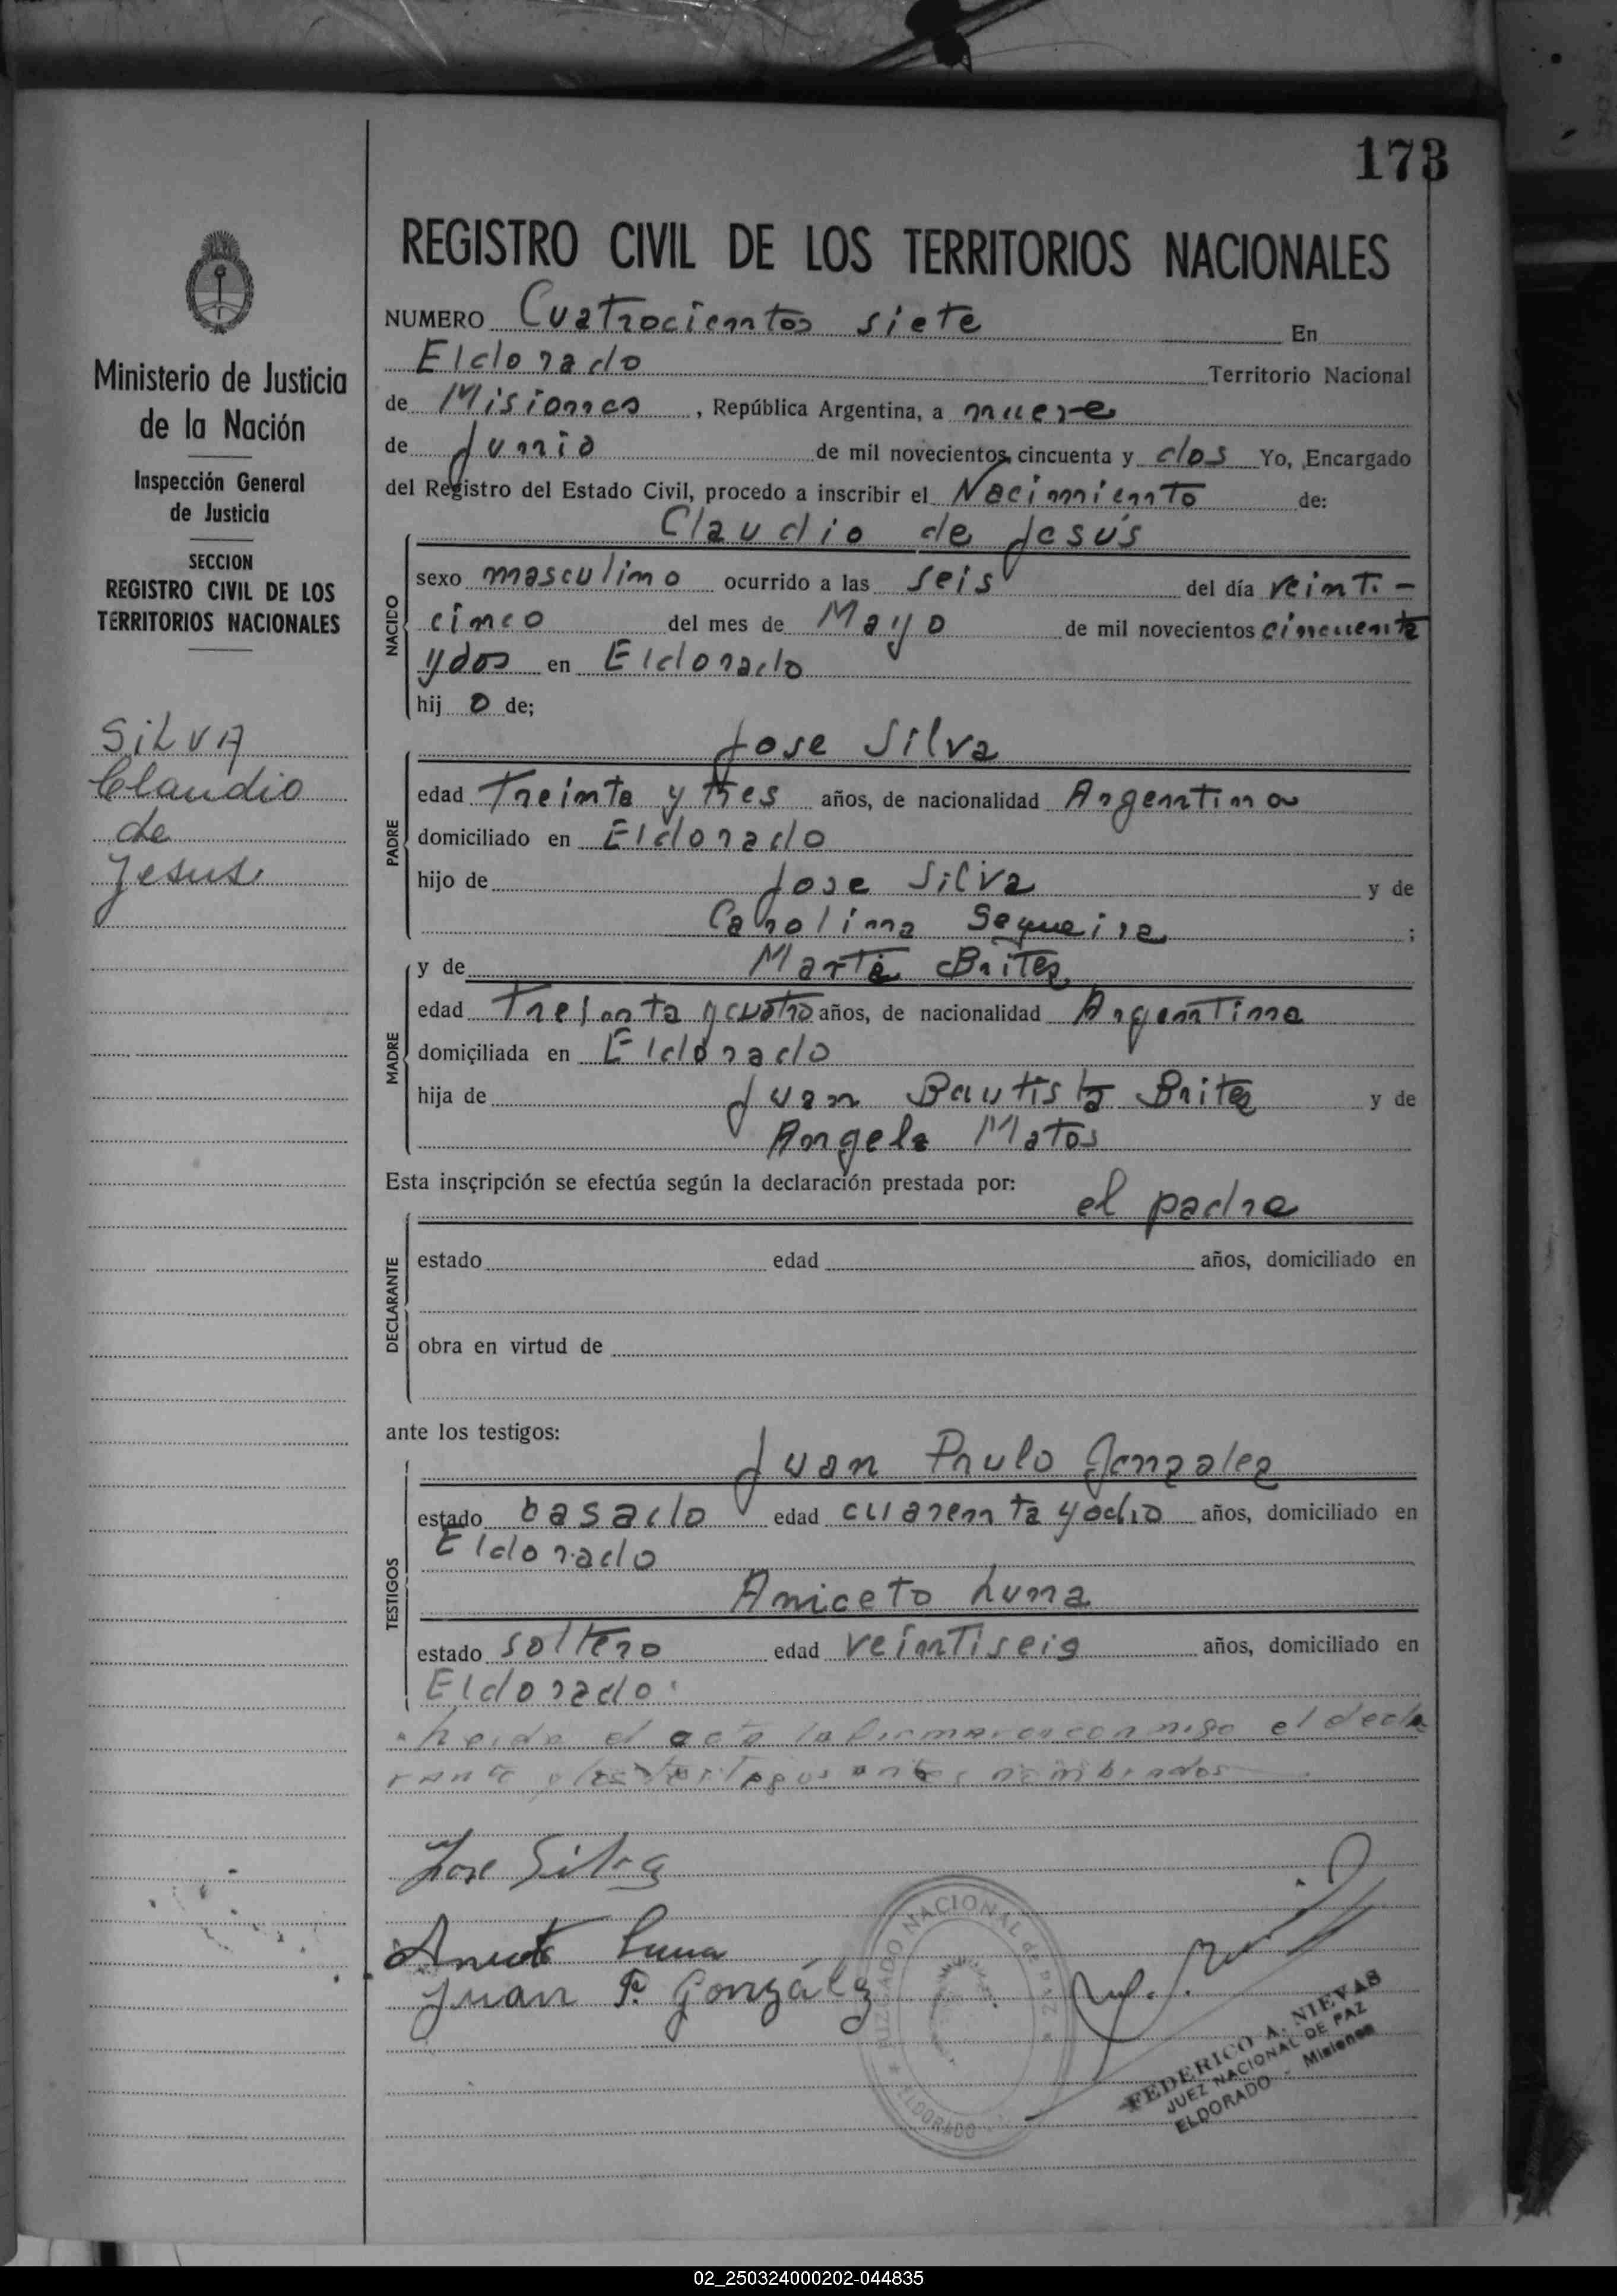 173
REGISTRO CIVIL DE LOS TERRITORIOS NACIONALES
Ministerio de Justicia
de la Nación
Inspección General
de Justicia
SECCION
REGISTRO CIVIL DE LOS
TERRITORIOS NACIONALES
SILVA
Claudio
de
Jesus
NUMERO Cuatrocientos siete En
Eldorado Territorio Nacional
de Misiones, República Argentina, a nueve
de Junio de mil novecientos cincuenta y dos Yo, Encargado
del Registro del Estado Civil, procedo a inscribir el Nacimiento de:
Claudio de Jesús
NACIDO
sexo masculino ocurrido a las seis del día veinti-
cinco del mes de Mayo de mil novecientos cincuenta
y dos en Eldorado
hij o de;
Jose Silva
PADRE
edad Treinta y tres años, de nacionalidad Argentina
domiciliado en Eldorado
hijo de Jose Silva y de
Carolina Sequeira ;
y de Marta Britez
MADRE
edad Treinta y cuatro años, de nacionalidad Argentina
domiciliada en Eldorado
hija de Juan Bautista Britez y de
Angela Matos
Esta inscripción se efectúa según la declaración prestada por:
el padre
DECLARANTE
estado edad años, domiciliado en
obra en virtud de
ante los testigos:
Juan Paulo Gonzalez
TESTIGOS
estado casado edad cuarenta y ocho años, domiciliado en
Eldorado
Aniceto Luna
estado soltero edad veintiseis años, domiciliado en
Eldorado.
Leida el acta la firmaron conmigo el decla
rante y los testigos antes nombrados
Jose Silva
Aniceto Luna
Juan P. Gonzálz
JUZGADO NACIONAL de PAZ
ELDORADO
FEDERICO A. NIEVAS
JUEZ NACIONAL DE PAZ
ELDORADO - Misiones
02_250324000202-044835